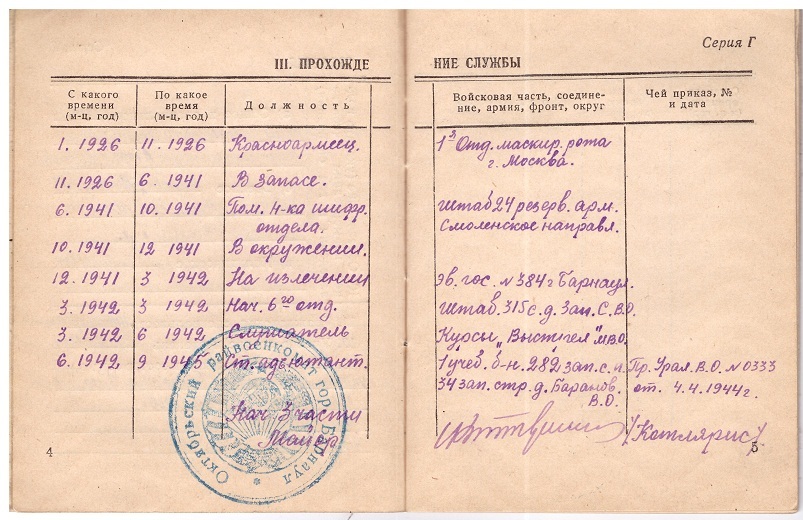 Серия Г
III. ПРОХОЖДЕ НИЕ СЛУЖБЫ
С какого времени (м-ц, год)
По какое время (м-ц, год)
Должность
Войсковая часть, соедине-
ние, армия, фронт, округ
Чей приказ, №
и дата
1. 1926 11. 1926 Красноармеец. 1я Отд. маскир. рота
г. Москва.
11. 1926 6. 1941 В запасе.
6. 1941 10. 1941 Пом. н-ка шифр. штаб 24 резерв. арм.
отдела. Смоленское направл.
10. 1941 12 1941 В окружении.
12. 1941 3 1942 На излечении эв. гос. N 384 г Барнаул.
3. 1942 3 1942 Нач. 6го отд. штаб. 315 с. д. Зап. С. В. О.
3. 1942 6 1942 Слушатель Курсы "Выстрел"
6. 1942 9 1945 Ст. адъютант. 1 учеб. б-н. 282 зап. с. п. Пр. Урал. В. О. N 0333
34 зап. стр. д. Баранов. от. 4. 4. 1944 г.
В. О.
Нач 3 части
Майор
/Котлярис/
Октябрьский райвоенкомат гор. Барнаул
4
5